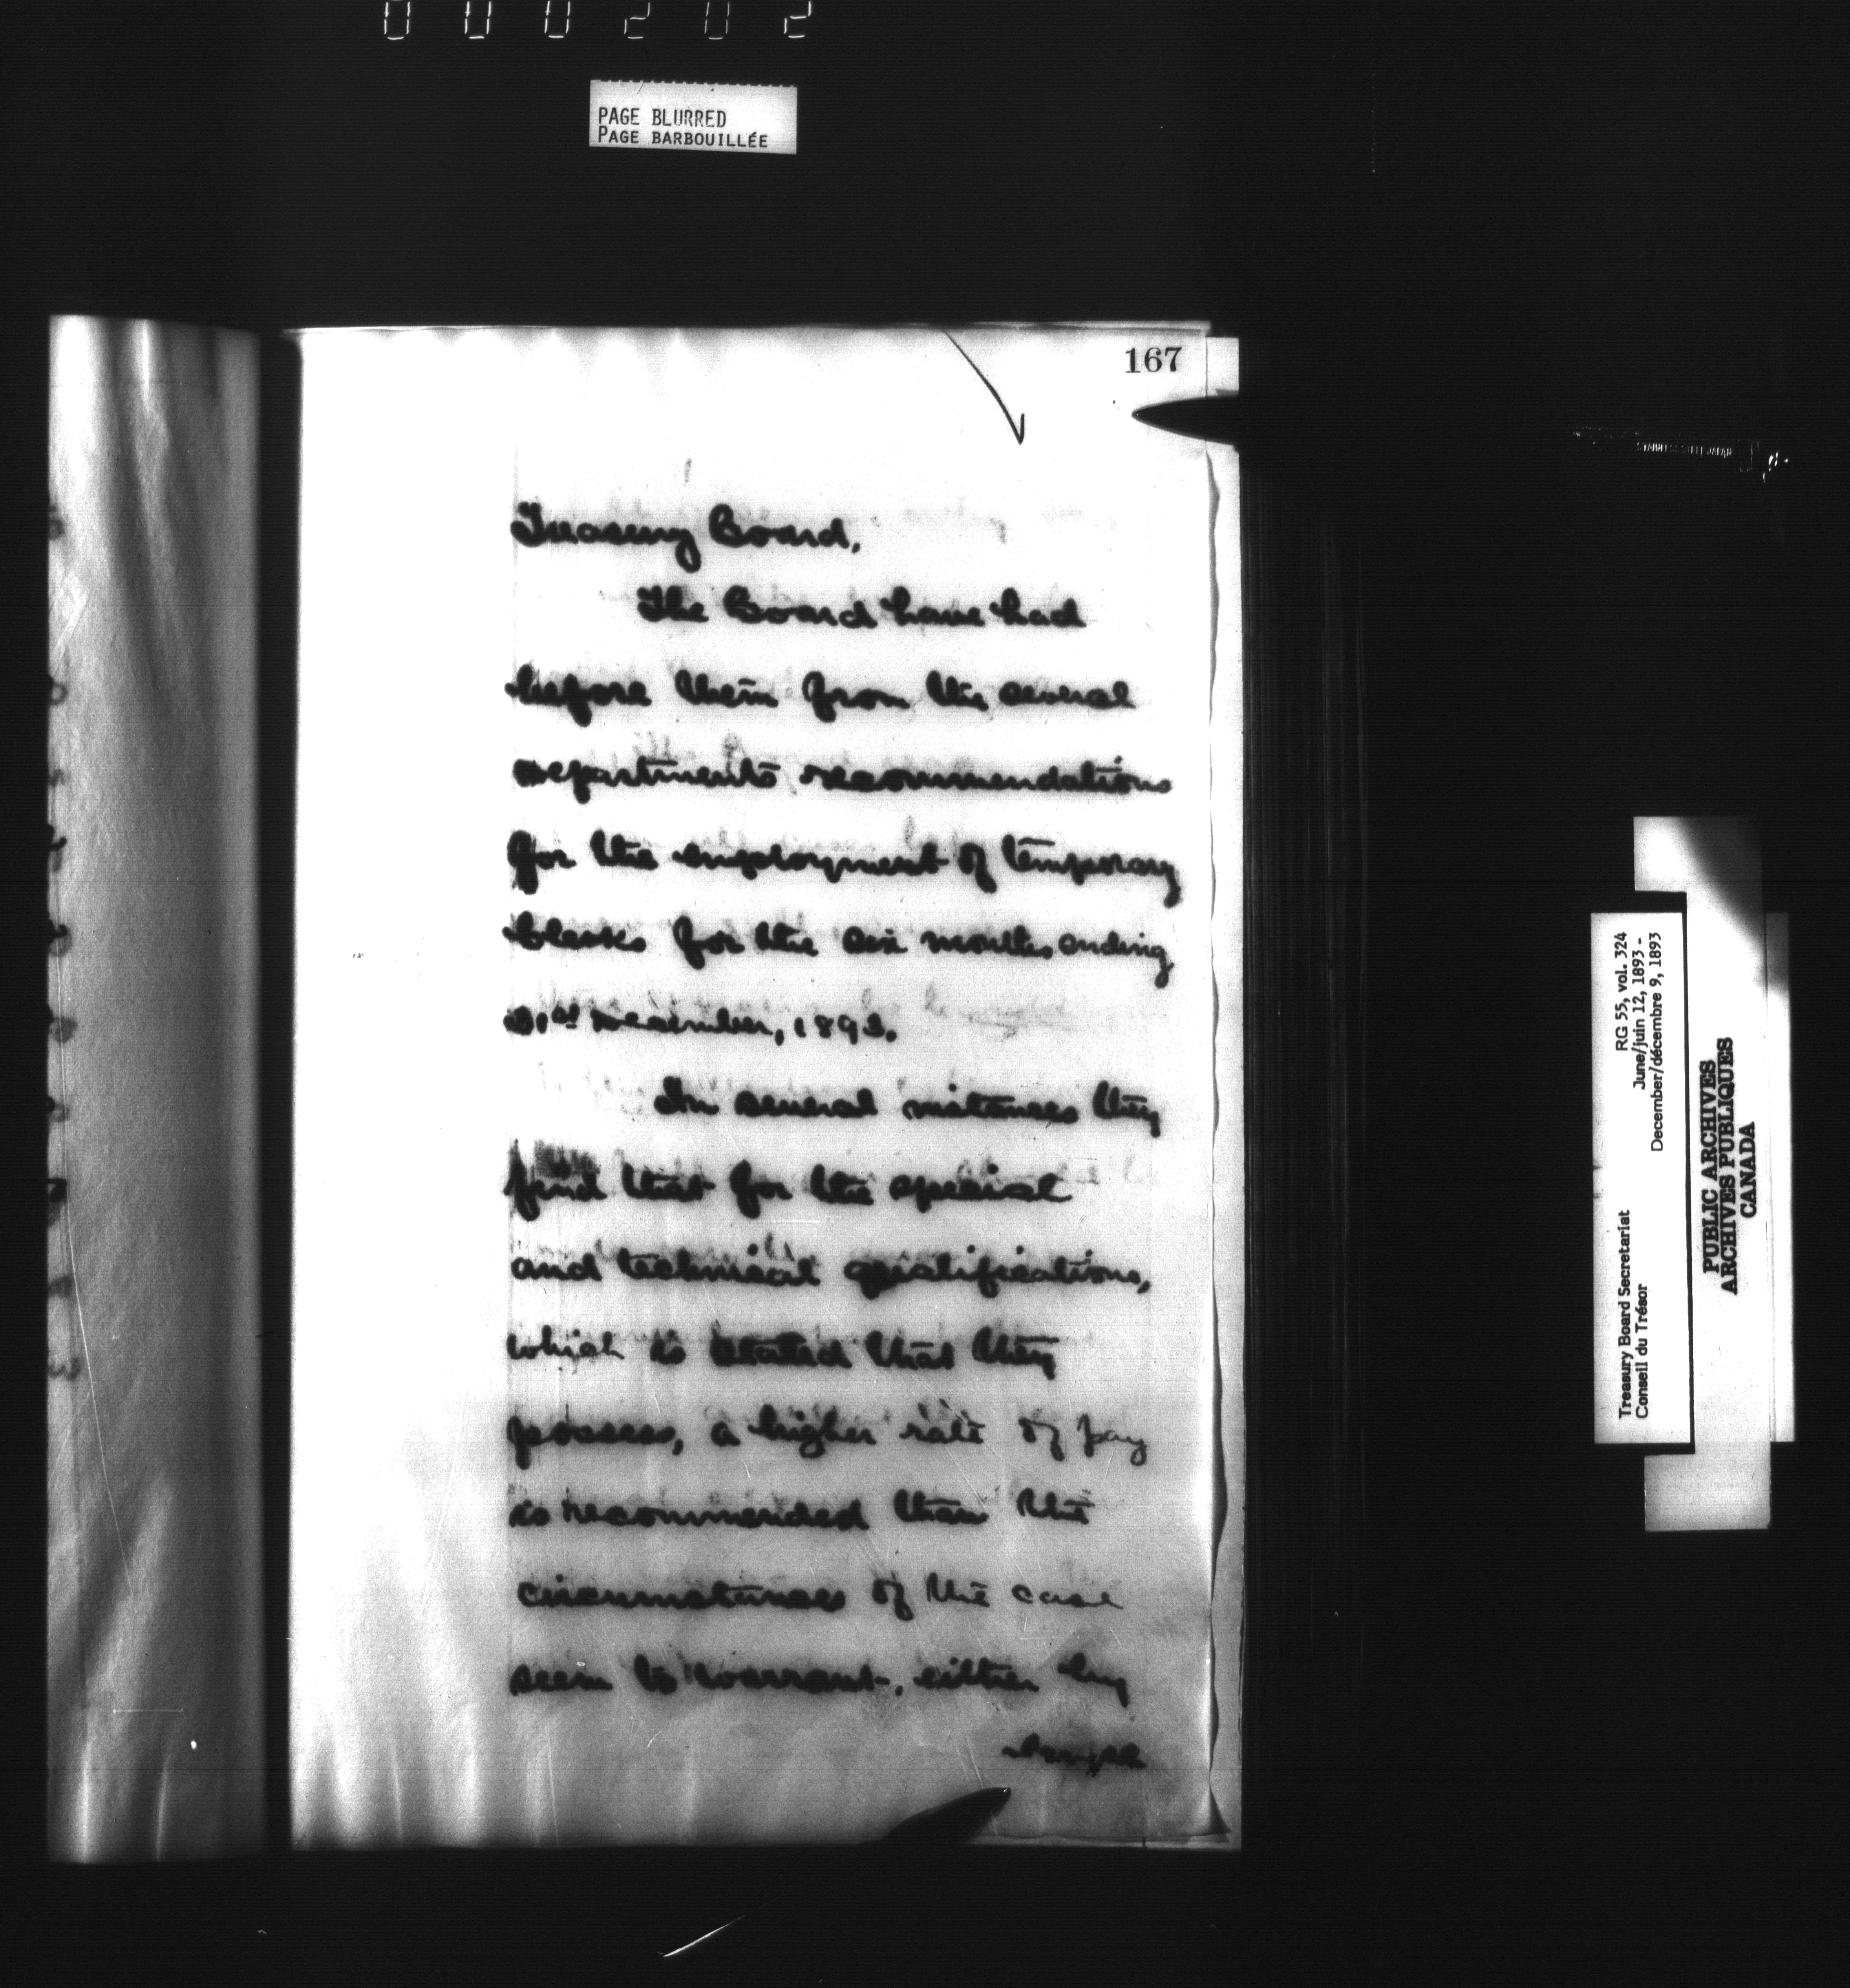 000202
PAGE BLURRED
PAGE BARBOUILLÉE
167
Treasury Board.
The Board have had
before them from the several
Departments recommendations
for the employment of temporary
Clerks for the six months ending
31st December, 1893.
In several instances they
find that for the special
and technical qualifications,
which is stated that they
possess, a higher rate of pay
is recommended than the
circumstances of the case
seem to warrant, either by
Treasury Board Secretariat RG 55, vol. 324
Conseil du Trésor June/juin 12, 1893 -
December/décembre 9, 1893
PUBLIC ARCHIVES
ARCHIVES PUBLIQUES
CANADA